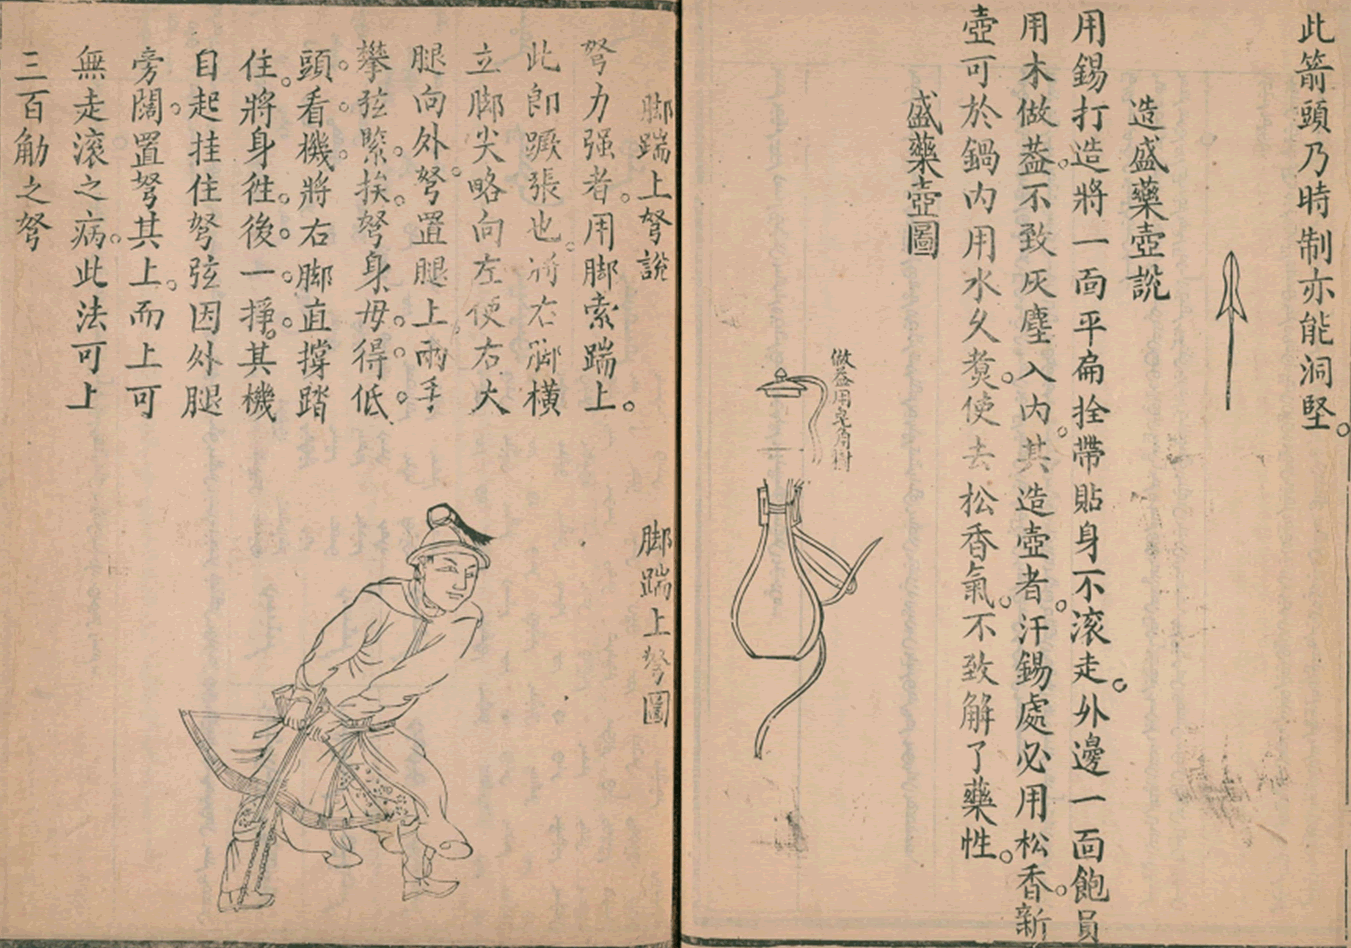 此箭頭乃時制亦能洞堅。
造盛藥壺説
用錫打造將一面平扁拴帶貼身不滚走。外邊一面飽員
用木做葢。不致灰塵入内。其造壺者。汗錫處必用松香。新
壺可於鍋内用水久煑。使去松香氣。不致解了藥性。
盛藥壺圖
做葢用皂角樹
脚踹上弩説
弩力强者。用脚索踹上。
此卽蹶張也。將右脚橫
立脚尖略向左使右大
腿向外。弩置腿上。兩手
攀弦緊。挨。弩身。毋。得。低。
頭。看。機。將右脚直撑踏
住。將身徃。後。一。掙。其機
自起挂住弩弦因外腿
旁闊。置弩其上。而上可
無走滚之病。此法可上
三百觔之弩
脚踹上弩圖